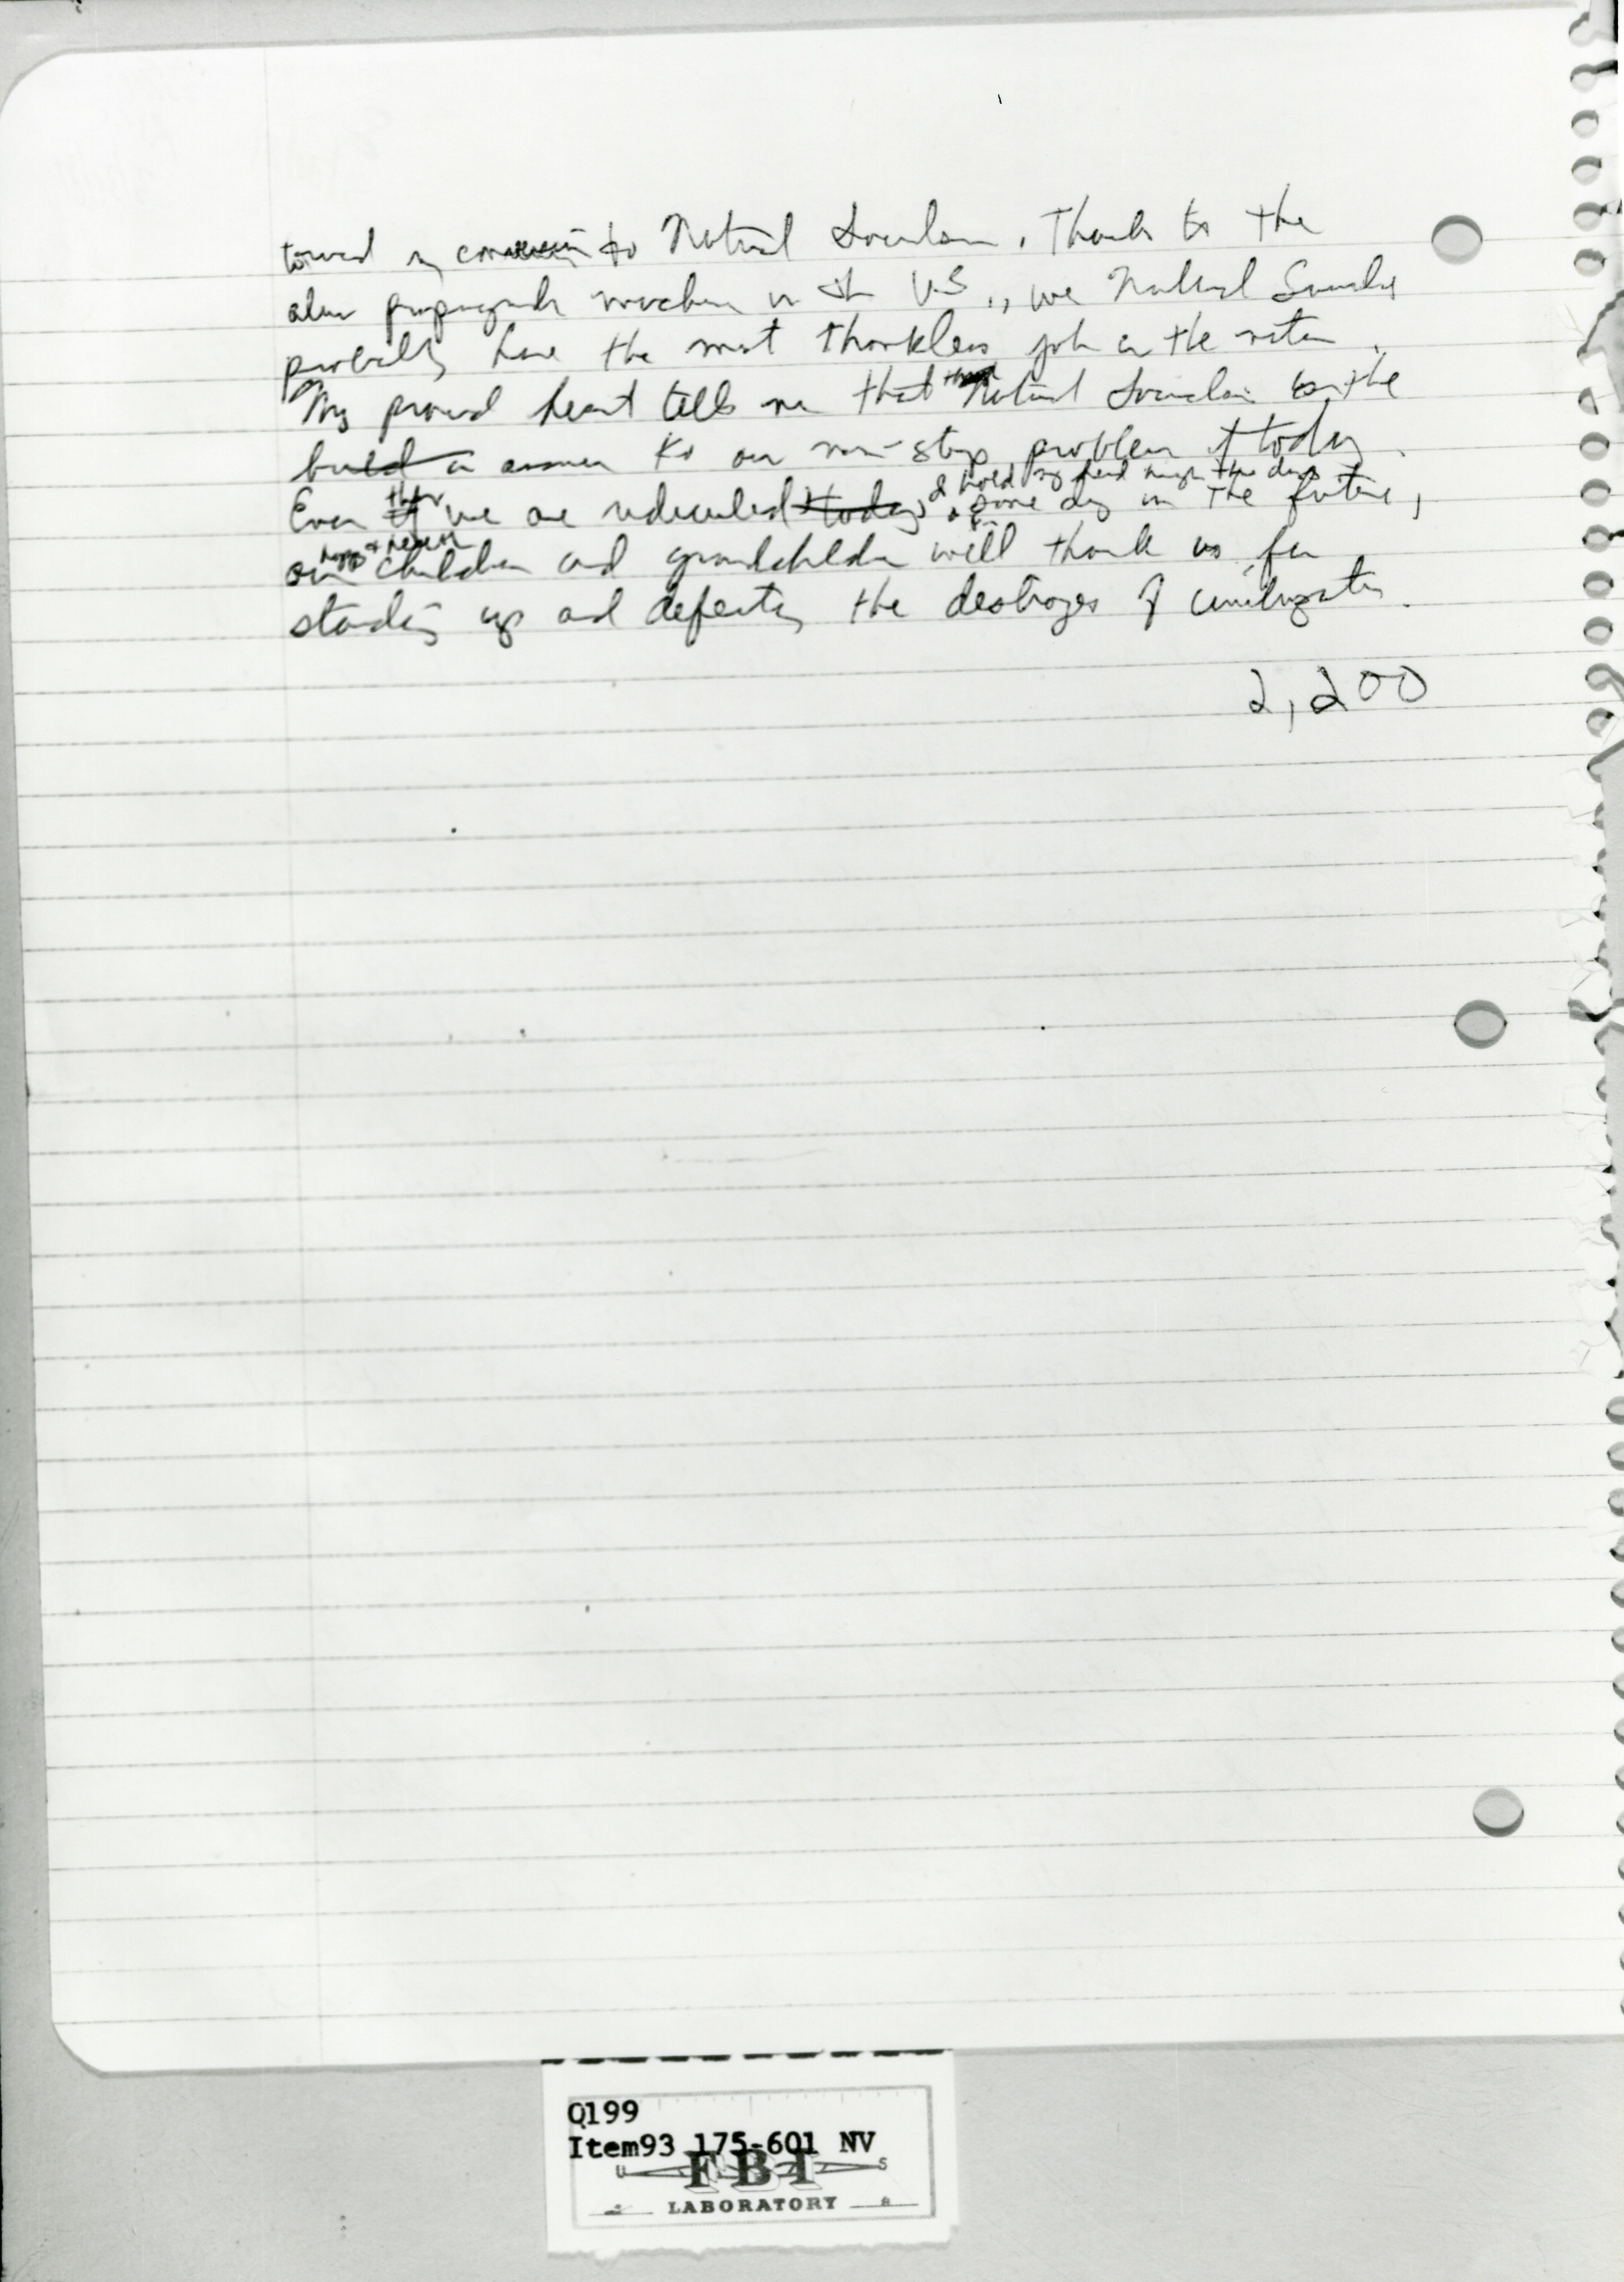 toward my conversion to National Socialism. Thanks to the
alien propaganda machine in the U.S., we National Socialists
probably have the most thankless job in the nation.
My proud heart tells me that National Socialism is the
answer to our non-stop problem of today.
Even tho we are rediculed, I hold my head high these days & some day in the future,
our happy & healthy children and grandchildren will thank us for
standing up and defeating the destroyers of civilization.
2,200
Q199
Item93 175-601 NV
U S
FBI
LABORATORY